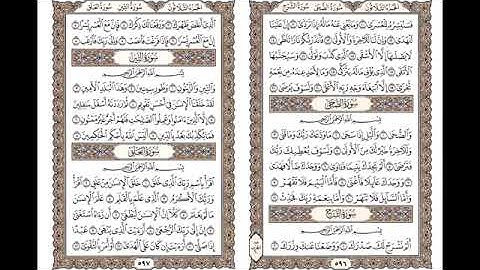 الجزء الثلاثون سورة الضحى سورة الشرح
فَسَنُيَسِّرُهُۥ لِلْعُسْرَىٰ ١٠ وَمَا يُغْنِى عَنْهُ مَالُهُۥٓ إِذَا تَرَدَّىٰٓ ١١ إِنَّ عَلَيْنَا
لَلْهُدَىٰ ١٢ وَإِنَّ لَنَا لَلْءَاخِرَةَ وَٱلْأُولَىٰ ١٣ فَأَنذَرْتُكُمْ نَارًا تَلَظَّىٰ ١٤
لَا يَصْلَىٰهَآ إِلَّا ٱلْأَشْقَى ١٥ ٱلَّذِى كَذَّبَ وَتَوَلَّىٰ ١٦ وَسَيُجَنَّبُهَا
ٱلْأَتْقَى ١٧ ٱلَّذِى يُؤْتِى مَالَهُۥ يَتَزَكَّىٰ ١٨ وَمَا لِأَحَدٍ عِندَهُۥ مِن نِّعْمَةٍ
تُجْزَىٰٓ ١٩ إِلَّا ٱبْتِغَآءَ وَجْهِ رَبِّهِ ٱلْأَعْلَىٰ ٢٠ وَلَسَوْفَ يَرْضَىٰ ٢١
سورة الضحى
بِسْمِ ٱللَّهِ ٱلرَّحْمَٰنِ ٱلرَّحِيمِ
وَٱلضُّحَىٰ ١ وَٱلَّيْلِ إِذَا سَجَىٰ ٢ مَا وَدَّعَكَ رَبُّكَ وَمَا قَلَىٰ ٣
وَلَلْءَاخِرَةُ خَيْرٌ لَّكَ مِنَ ٱلْأُولَىٰ ٤ وَلَسَوْفَ يُعْطِيكَ رَبُّكَ
فَتَرْضَىٰٓ ٥ أَلَمْ يَجِدْكَ يَتِيمًا فَـَٔاوَىٰ ٦ وَوَجَدَكَ ضَآلًّا فَهَدَىٰ
٧ وَوَجَدَكَ عَآئِلًا فَأَغْنَىٰ ٨ فَأَمَّا ٱلْيَتِيمَ فَلَا تَقْهَرْ
٩ وَأَمَّا ٱلسَّآئِلَ فَلَا تَنْهَرْ ١٠ وَأَمَّا بِنِعْمَةِ رَبِّكَ فَحَدِّثْ ١١
سورة الشرح
بِسْمِ ٱللَّهِ ٱلرَّحْمَٰنِ ٱلرَّحِيمِ
أَلَمْ نَشْرَحْ لَكَ صَدْرَكَ ١ وَوَضَعْنَا عَنكَ وِزْرَكَ ٢
٥٩٦
الجزء الثلاثون سورة التين سورة العلق
ٱلَّذِىٓ أَنقَضَ ظَهْرَكَ ٣ وَرَفَعْنَا لَكَ ذِكْرَكَ ٤ فَإِنَّ مَعَ ٱلْعُسْرِ يُسْرًا ٥
إِنَّ مَعَ ٱلْعُسْرِ يُسْرًا ٦ فَإِذَا فَرَغْتَ فَٱنصَبْ ٧ وَإِلَىٰ رَبِّكَ فَٱرْغَب ٨
سورة التين
بِسْمِ ٱللَّهِ ٱلرَّحْمَٰنِ ٱلرَّحِيمِ
وَٱلتِّينِ وَٱلزَّيْتُونِ ١ وَطُورِ سِينِينَ ٢ وَهَٰذَا ٱلْبَلَدِ ٱلْأَمِينِ ٣
لَقَدْ خَلَقْنَا ٱلْإِنسَٰنَ فِىٓ أَحْسَنِ تَقْوِيمٍ ٤ ثُمَّ رَدَدْنَٰهُ أَسْفَلَ سَٰفِلِينَ ٥
إِلَّا ٱلَّذِينَ ءَامَنُوا۟ وَعَمِلُوا۟ ٱلصَّٰلِحَٰتِ فَلَهُمْ أَجْرٌ غَيْرُ مَمْنُونٍ ٦
فَمَا يُكَذِّبُكَ بَعْدُ بِٱلدِّينِ ٧ أَلَيْسَ ٱللَّهُ بِأَحْكَمِ ٱلْحَٰكِمِينَ ٨
سورة العلق
بِسْمِ ٱللَّهِ ٱلرَّحْمَٰنِ ٱلرَّحِيمِ
ٱقْرَأْ بِٱسْمِ رَبِّكَ ٱلَّذِى خَلَقَ ١ خَلَقَ ٱلْإِنسَٰنَ مِنْ عَلَقٍ ٢ ٱقْرَأْ
وَرَبُّكَ ٱلْأَكْرَمُ ٣ ٱلَّذِى عَلَّمَ بِٱلْقَلَمِ ٤ عَلَّمَ ٱلْإِنسَٰنَ
مَا لَمْ يَعْلَمْ ٥ كَلَّآ إِنَّ ٱلْإِنسَٰنَ لَيَطْغَىٰٓ ٦ أَن رَّءَاهُ ٱسْتَغْنَىٰٓ
٧ إِنَّ إِلَىٰ رَبِّكَ ٱلرُّجْعَىٰٓ ٨ أَرَءَيْتَ ٱلَّذِى يَنْهَىٰ ٩ عَبْدًا
إِذَا صَلَّىٰٓ ١٠ أَرَءَيْتَ إِن كَانَ عَلَى ٱلْهُدَىٰٓ ١١ أَوْ أَمَرَ بِٱلتَّقْوَىٰٓ ١٢
٥٩٧